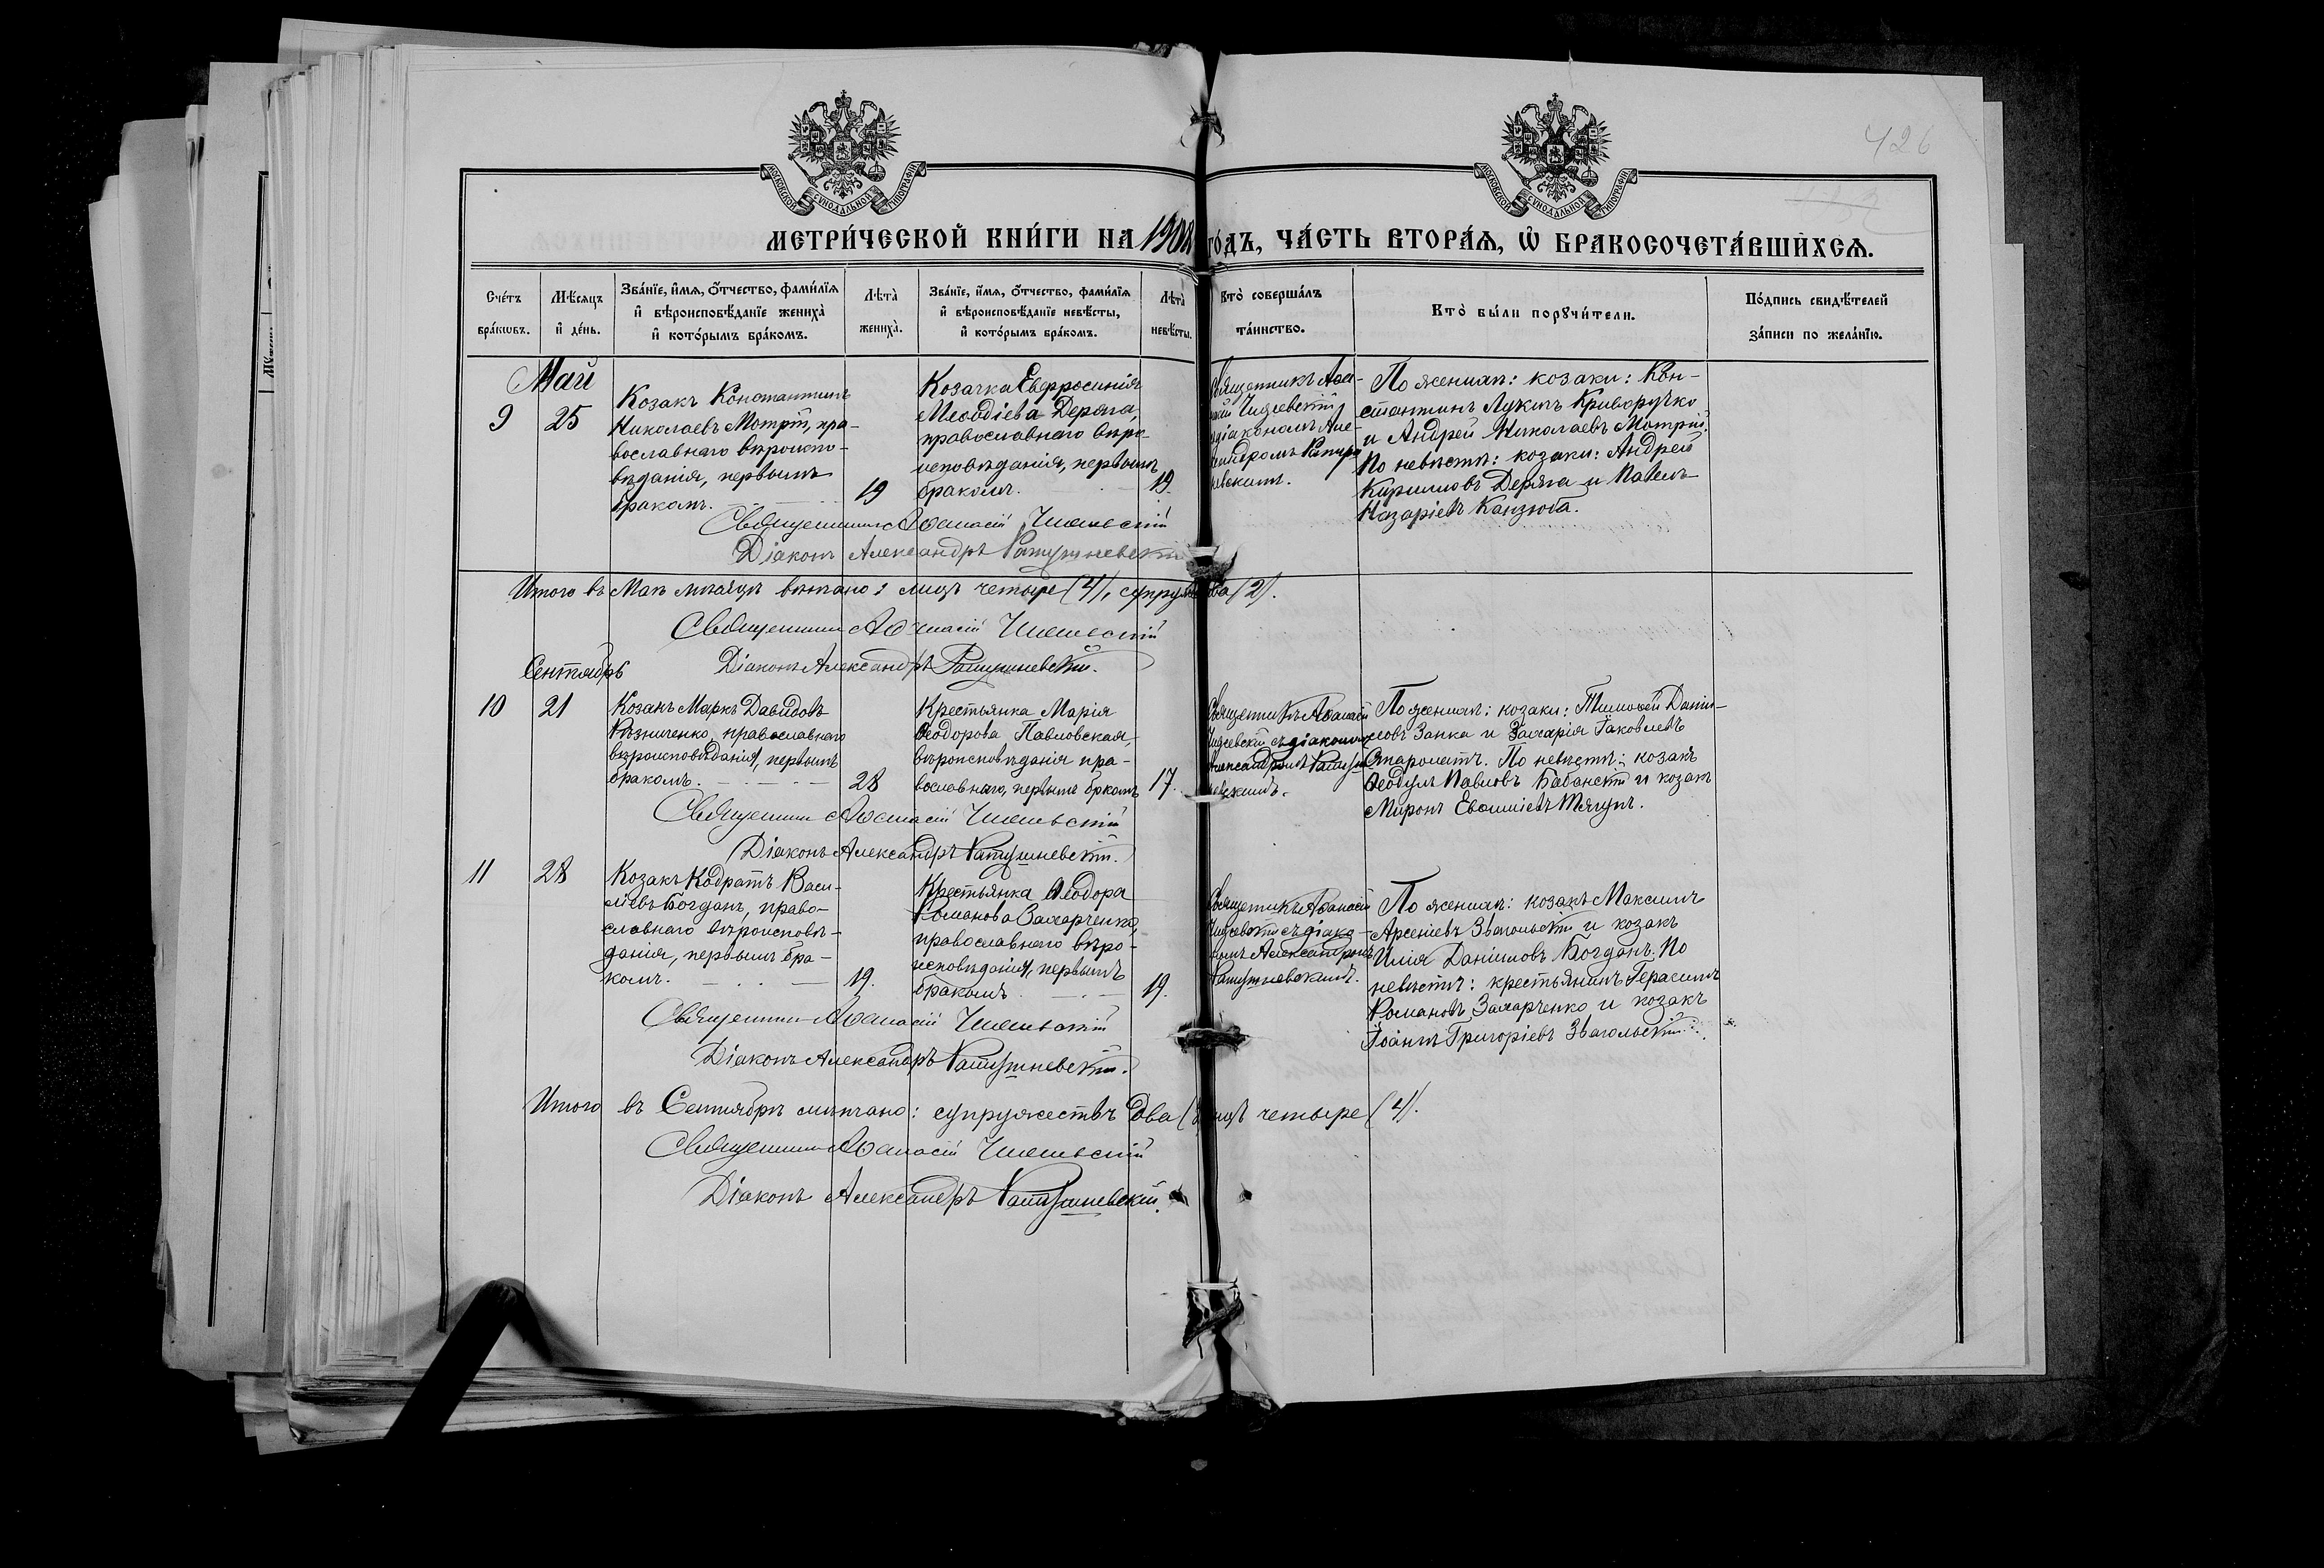 426
МОСКОВСКОЙ СУНОДАЛЬНОЙ ТИПОГРАФІИ
МОСКОВСКОЙ СУНОДАЛЬНОЙ ТИПОГРАФІИ
МЕТРИ́ЧЕСКОЙ КНИ́ГИ НА 1908 ГО́ДЪ, ЧА́СТЬ ВТОРА́Я, Ѡ БРАКОСОЧЕТА́ВШИХСЯ.
Сче́тъ бра́ковъ.
Мѣ́сяцъ и҆ де́нь.
Зва́нїе, и҆́мя, о҆́тчество, фами́лїя и҆ вѣроисповѣ́данїе жениха̀ и҆ кото́рымъ бра́комъ.
Лѣта̀ жениха̀.
Зва́нїе, и҆́мя, о҆́тчество, фами́лїя и҆ вѣроисповѣ́данїе невѣ́сты, и҆ кото́рымъ бра́комъ.
Лѣта̀ невѣ́сты.
Кто̀ соверша́лъ та́инство.
Кто̀ бы́ли поручи́тели.
По́дпись свидѣ́телей за́писи по жела́нїю.
Май
9
25
Козакъ Константинъ
Николаевъ Мотрій, пра-
вославнаго вѣроиспо-
вѣданія, первымъ
бракомъ.
19
Козачка Евфросинія
Меѳодіева Деряга,
православнаго вѣро-
исповѣданія, первымъ
бракомъ.
19.
Священникъ Аѳа-
діакономъ Але-
невскимъ.
По женихѣ: козаки: Кон-
стантинъ Лукинъ Криворучко
и Андрей Николаевъ Мотрій.
По невѣстѣ: козаки: Андрей
Кирилловъ Деряга и Павелъ
Назаріевъ Канзюба.
Священникъ Аѳанасій
Діаконъ Александръ
Итого въ Маѣ мѣсяцѣ вѣнчано: лицъ четыре (4), супружества (2).
Священникъ Аѳанасій
Діаконъ Александръ
Сентябрь
10
21
Козакъ Маркъ Давидовъ
Рѣзниченко, православнаго
вѣроисповѣданія, первымъ
бракомъ.
28
Крестьянка Марія
Ѳеодорова Павловская,
вѣроисповѣданія пра-
вославнаго, первымъ бркомъ
17.
Священникъ Аѳанасій
съ діакономъ
Александромъ
невскимъ.
По женихѣ: козаки: Тимоѳей Даніи-
ловъ Занка и Захарія Іаковлевъ
По невѣстѣ: козакъ
Ѳеодулъ Павловъ Бабанскій и козакъ
Миронъ Евѳиміевъ Тягунъ.
Священникъ Аѳанасій
Діаконъ Александръ
11
28
Козакъ Кодратъ Васи-
ліевъ Богданъ, право-
славнаго вѣроисповѣ-
данія, первымъ бра-
комъ.
19.
Крестьянка Ѳеодора
Романова Захарченко,
православнаго вѣро-
исповѣданія, первымъ
бракомъ
19.
Священникъ Аѳанасій
съ діако-
номъ Александромъ
По женихѣ: козакъ Максимъ
Арсеніевъ Звагольскій и козакъ
Илія Даніиловъ Богданъ. По
невѣстѣ: крестьянинъ Герасимъ
Романовъ Захарченко и козакъ
Іоаннъ Григоріевъ Звагольскій.
Священникъ Аѳанасій
Діаконъ Александръ
Итого въ Сентябрѣ вѣнчано: супружествъ два лицъ четыре (4).
Священникъ Аѳанасій
Діаконъ Александръ